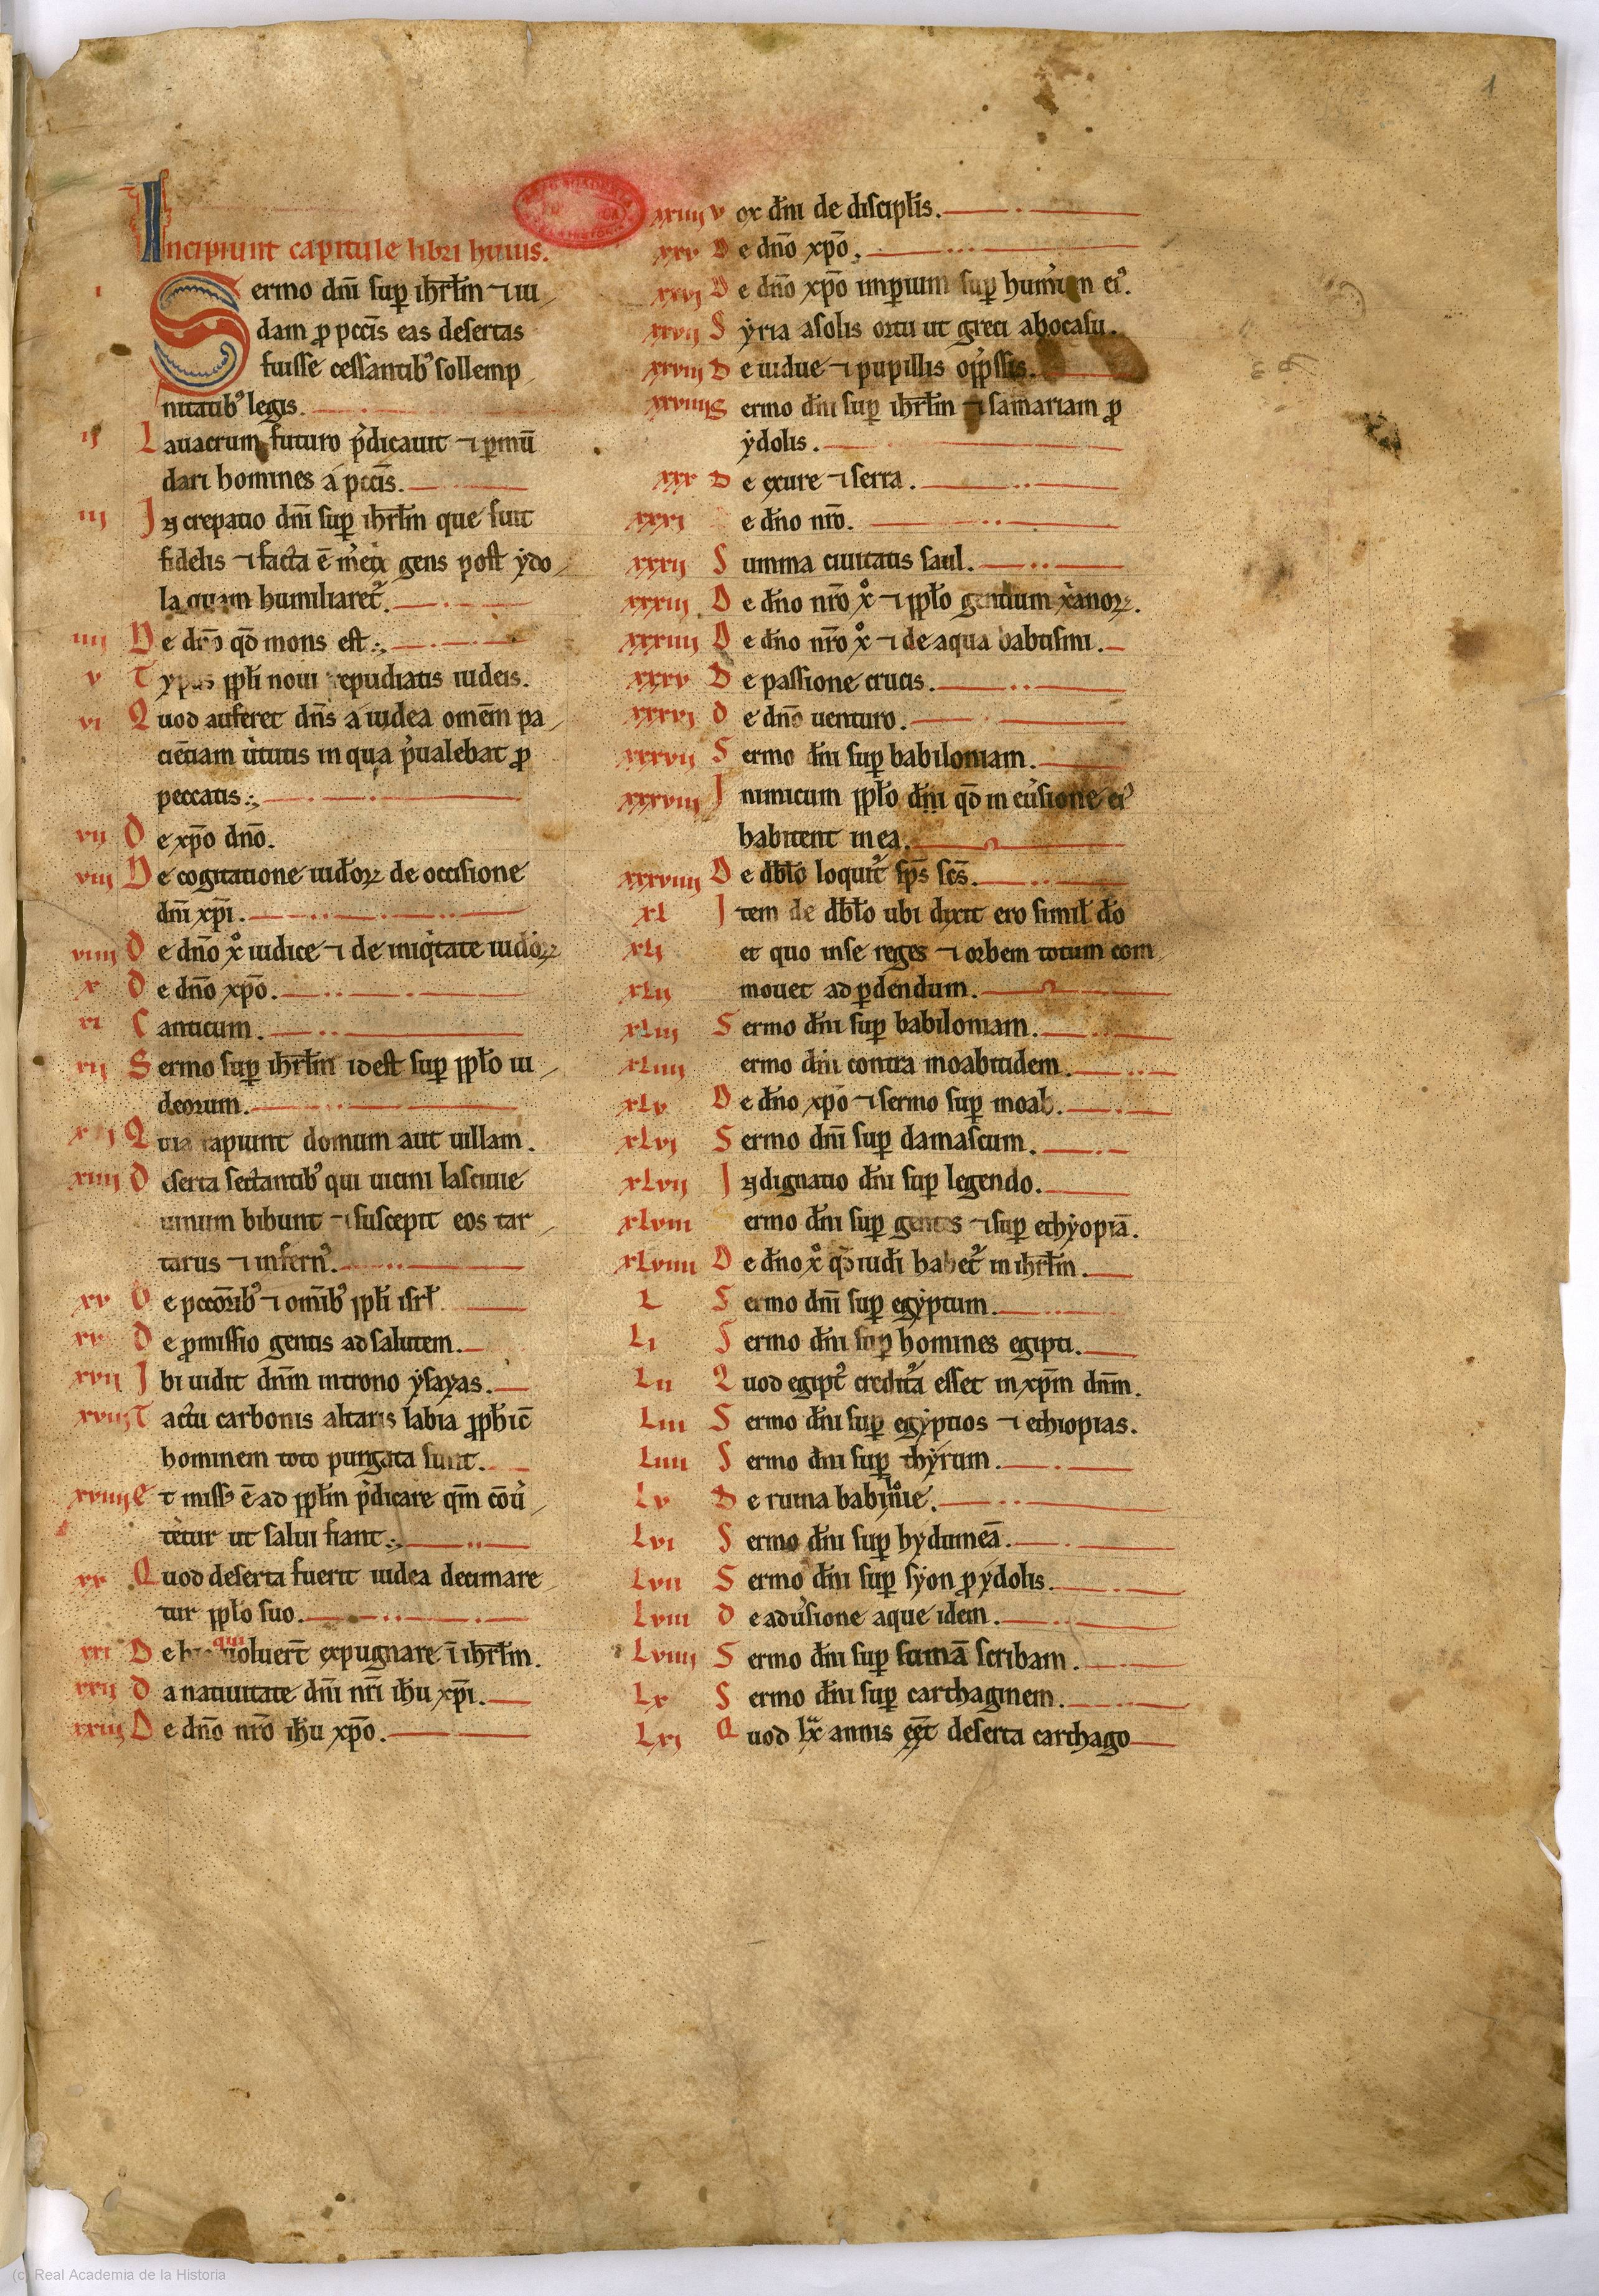 1
Incipiunt capitule libri huius.
i Sermo dn̄i sup̱ ih̄rłm ⁊ iu
dam ꝓ pcc̄is eas desertas
fuisse cessantibꝰ sollemp
nitatibꝰ legis.
ij Lauacrum futuro p̓dicauit ⁊ ꝑmū
dari homines a pcc̄is.
iij Increpatio dn̄i suꝑ ih̄rłm que fuit
fidelis ⁊ facta ē m̓etͥx gens post ẏdo
la quam humiliaret᷑.
iiij De dn̄o qđ mons est
v Typus ppłi noui repudiatis iudeis.
vi Quod auferet dn̄s a iudea omēm pa
ciētiam u̓tutis in qua p̓ualebat ꝓ
peccatis
vij De xp̄o dn̄o.
viij De cogitatione iud̓oꝝ de occisione
dn̄i xp̄i.
viiij De dn̄o xͦ iudice ⁊ de iniqͥtate iud̓oꝝ
x De dn̄o xp̄o.
xi Canticum.
xij Sermo suꝑ ih̄rłm id est suꝑ ppło iu
deorum.
rapiunt domum aut uillam.
xiiij Deserta sectantibꝰ qui uicini lasciuie
uinum bibunt ⁊ suscepit eos tar
tarus ⁊ infernꝰ.
xv De peccōribꝰ ⁊ om̄ibꝰ ppłi isrł
De ꝓmissio gentis ad salutem.
xvij Ibi uidit dn̄m in trono ẏsaẏas.
xviij Tactu carbonis altaris labia ꝓph̓ic̄
hominem toto purgata sunt.
xviiij Et missꝰ ē ad ppłm p̓dicare qm̄ cōu̓
tētur ut salui fiant
xx Quod deserta fuerit iudea decimare
tur ppło suo.
xxi De his qui uoluer̄t expugnare ī ih̄rłm.
xxij Da natiuitate dn̄i nr̄i ih̄u xp̄i.
xxiij De dn̄o nr̄o ih̄u xp̄o.
xxiiij Vox dn̄i de disciplis.
xxv De dn̄o xp̄o.
xxvi De dn̄o xp̄o imꝑium suꝑ hum̓um eiꝰ.
xxvij Sẏria asolis ortu ut greci abocasu.
xxviij De uidue ⁊ pupillis opp̓ssis.
xxviiij Sermo dn̄i suꝑ ih̄rłm ⁊ samariam ꝓ
ẏdolis.
xxx De exure ⁊ serra.
xxxi e dn̄o nr̄o.
xxxij Summa ciuitatis saul.
xxxiij De dn̄o nr̄o xͦ ⁊ ppło gentium x̓anoꝝ.
xxxiiij De dn̄o nr̄o xͦ ⁊ de aqua babtismi.
xxxv De passione crucis.
xxxvi De dn̄o uenturo.
xxxvij Sermo dn̄i suꝑ babiloniam.
xxxviij Inimicum ppło dn̄i qđ in eu̓sione eiꝰ
habitent in ea.
xxxviiij De dƀło loquit᷑ sp̄s sc̄s.
xl Item de dƀło ubi dixit ero simił dō
xlj et quo inse reges ⁊ orbem totum com
xlij mouet ad ꝑdendum.
xliij Sermo dn̄i suꝑ babiloniam.
xliiij ermo dn̄i contra moabitidem.
xlv De dn̄o xp̄o ⁊ sermo suꝑ moab.
xlvj Sermo dn̄i suꝑ damascum.
xlvij Indignatio dn̄i suꝑ legendo.
xlviij ermo dn̄i suꝑ gentes ⁊ suꝑ ethẏopiā.
xlviiij De dn̄o xͦ qđ iud̓i habet᷑ in ih̄rłm.
L Sermo dn̄i suꝑ egẏptum.
Li Sermo dn̄i suꝑ homines egipti.
Lij Quod egipt᷑ creditura esset in xp̄m dn̄m.
Liij Sermo dn̄i suꝑ egẏptios ⁊ ethiopias.
Liiij Sermo dn̄i suꝑ thẏrum.
Lv De ruina babiłonie.
Lvi Sermo dn̄i suꝑ hydumeā.
Lvij Sermo dn̄i suꝑ sẏon ꝓ ẏdolis.
Lviij De adu̓sione aque idem.
Lviiij Sermo dn̄i suꝑ scribam.
Lx Sermo dn̄i suꝑ carthaginem.
Lxj Quod lxͣ annis eēt deserta carthago
(c) Real Academia de la Historia